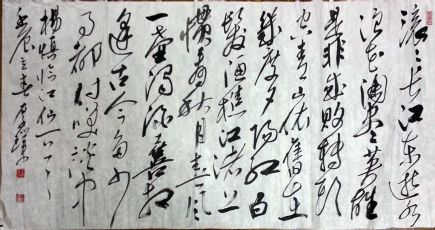 滚〻长江东逝水
浪花淘尽〻英雄
是非成败转头
空青山依旧在
几度夕阳红白
发渔樵江渚上
惯看秋月春风
一壶浊酒喜相
逢古今多少
事都付笑谈中
杨慎临江仙一首
壬辰立春